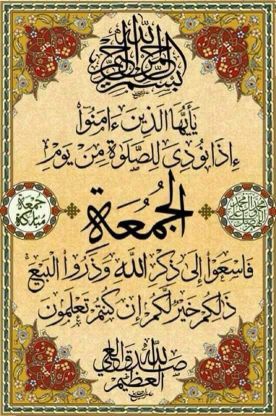 بسم الله الرحمن الرحيم
يَٰٓأَيُّهَا الَّذِينَ ءَامَنُوٓا
إِذَا نُودِىَ لِلصَّلَوٰةِ مِنْ يَوْمِ
الْجُمُعَةِ
جمعة مباركة
فَاسْعَوْا إِلَىٰ ذِكْرِ اللَّهِ وَذَرُوا الْبَيْعَ
ذَٰلِكُمْ خَيْرٌ لَّكُمْ إِن كُنتُمْ تَعْلَمُونَ
صدق الله العلي العظيم